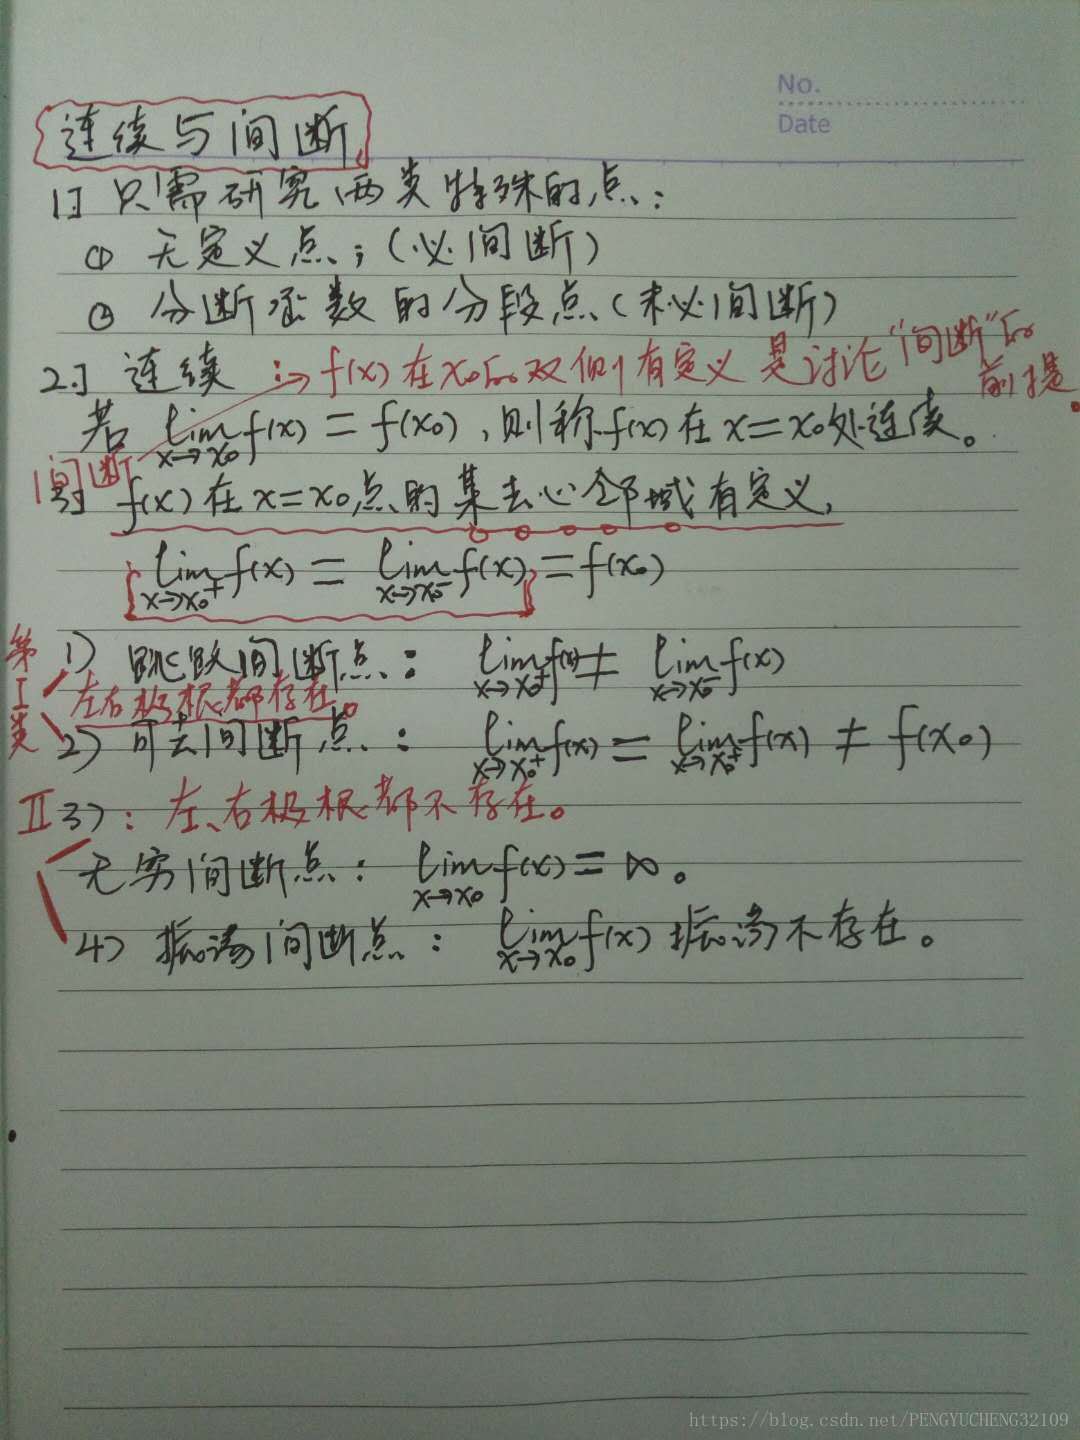 No.
Date
连续与间断
1.] 只需研究两类特殊的点:
① 无定义点;(必间断)
② 分断函数的分段点(未必间断)
2.] 连续 :→ f(x)在x₀的双侧有定义是讨论"间断"的前提。
若 lim_{x→x₀} f(x) = f(x₀),则称f(x)在x=x₀处连续。
间断
f(x)在x=x₀点的某去心邻域有定义,
lim_{x→x₀⁺} f(x) = lim_{x→x₀⁻} f(x) = f(x₀)
第I类
1) 跳跃间断点: lim_{x→x₀⁺} f(x) ≠ lim_{x→x₀⁻} f(x)
左右极限都存在。
2) 可去间断点: lim_{x→x₀⁺} f(x) = lim_{x→x₀⁺} f(x) ≠ f(x₀)
II 3): 左、右极限都不存在。
无穷间断点: lim_{x→x₀} f(x) = ∞。
4) 振荡间断点: lim_{x→x₀} f(x) 振荡不存在。
https://blog.csdn.net/PENGYUCHENG32109